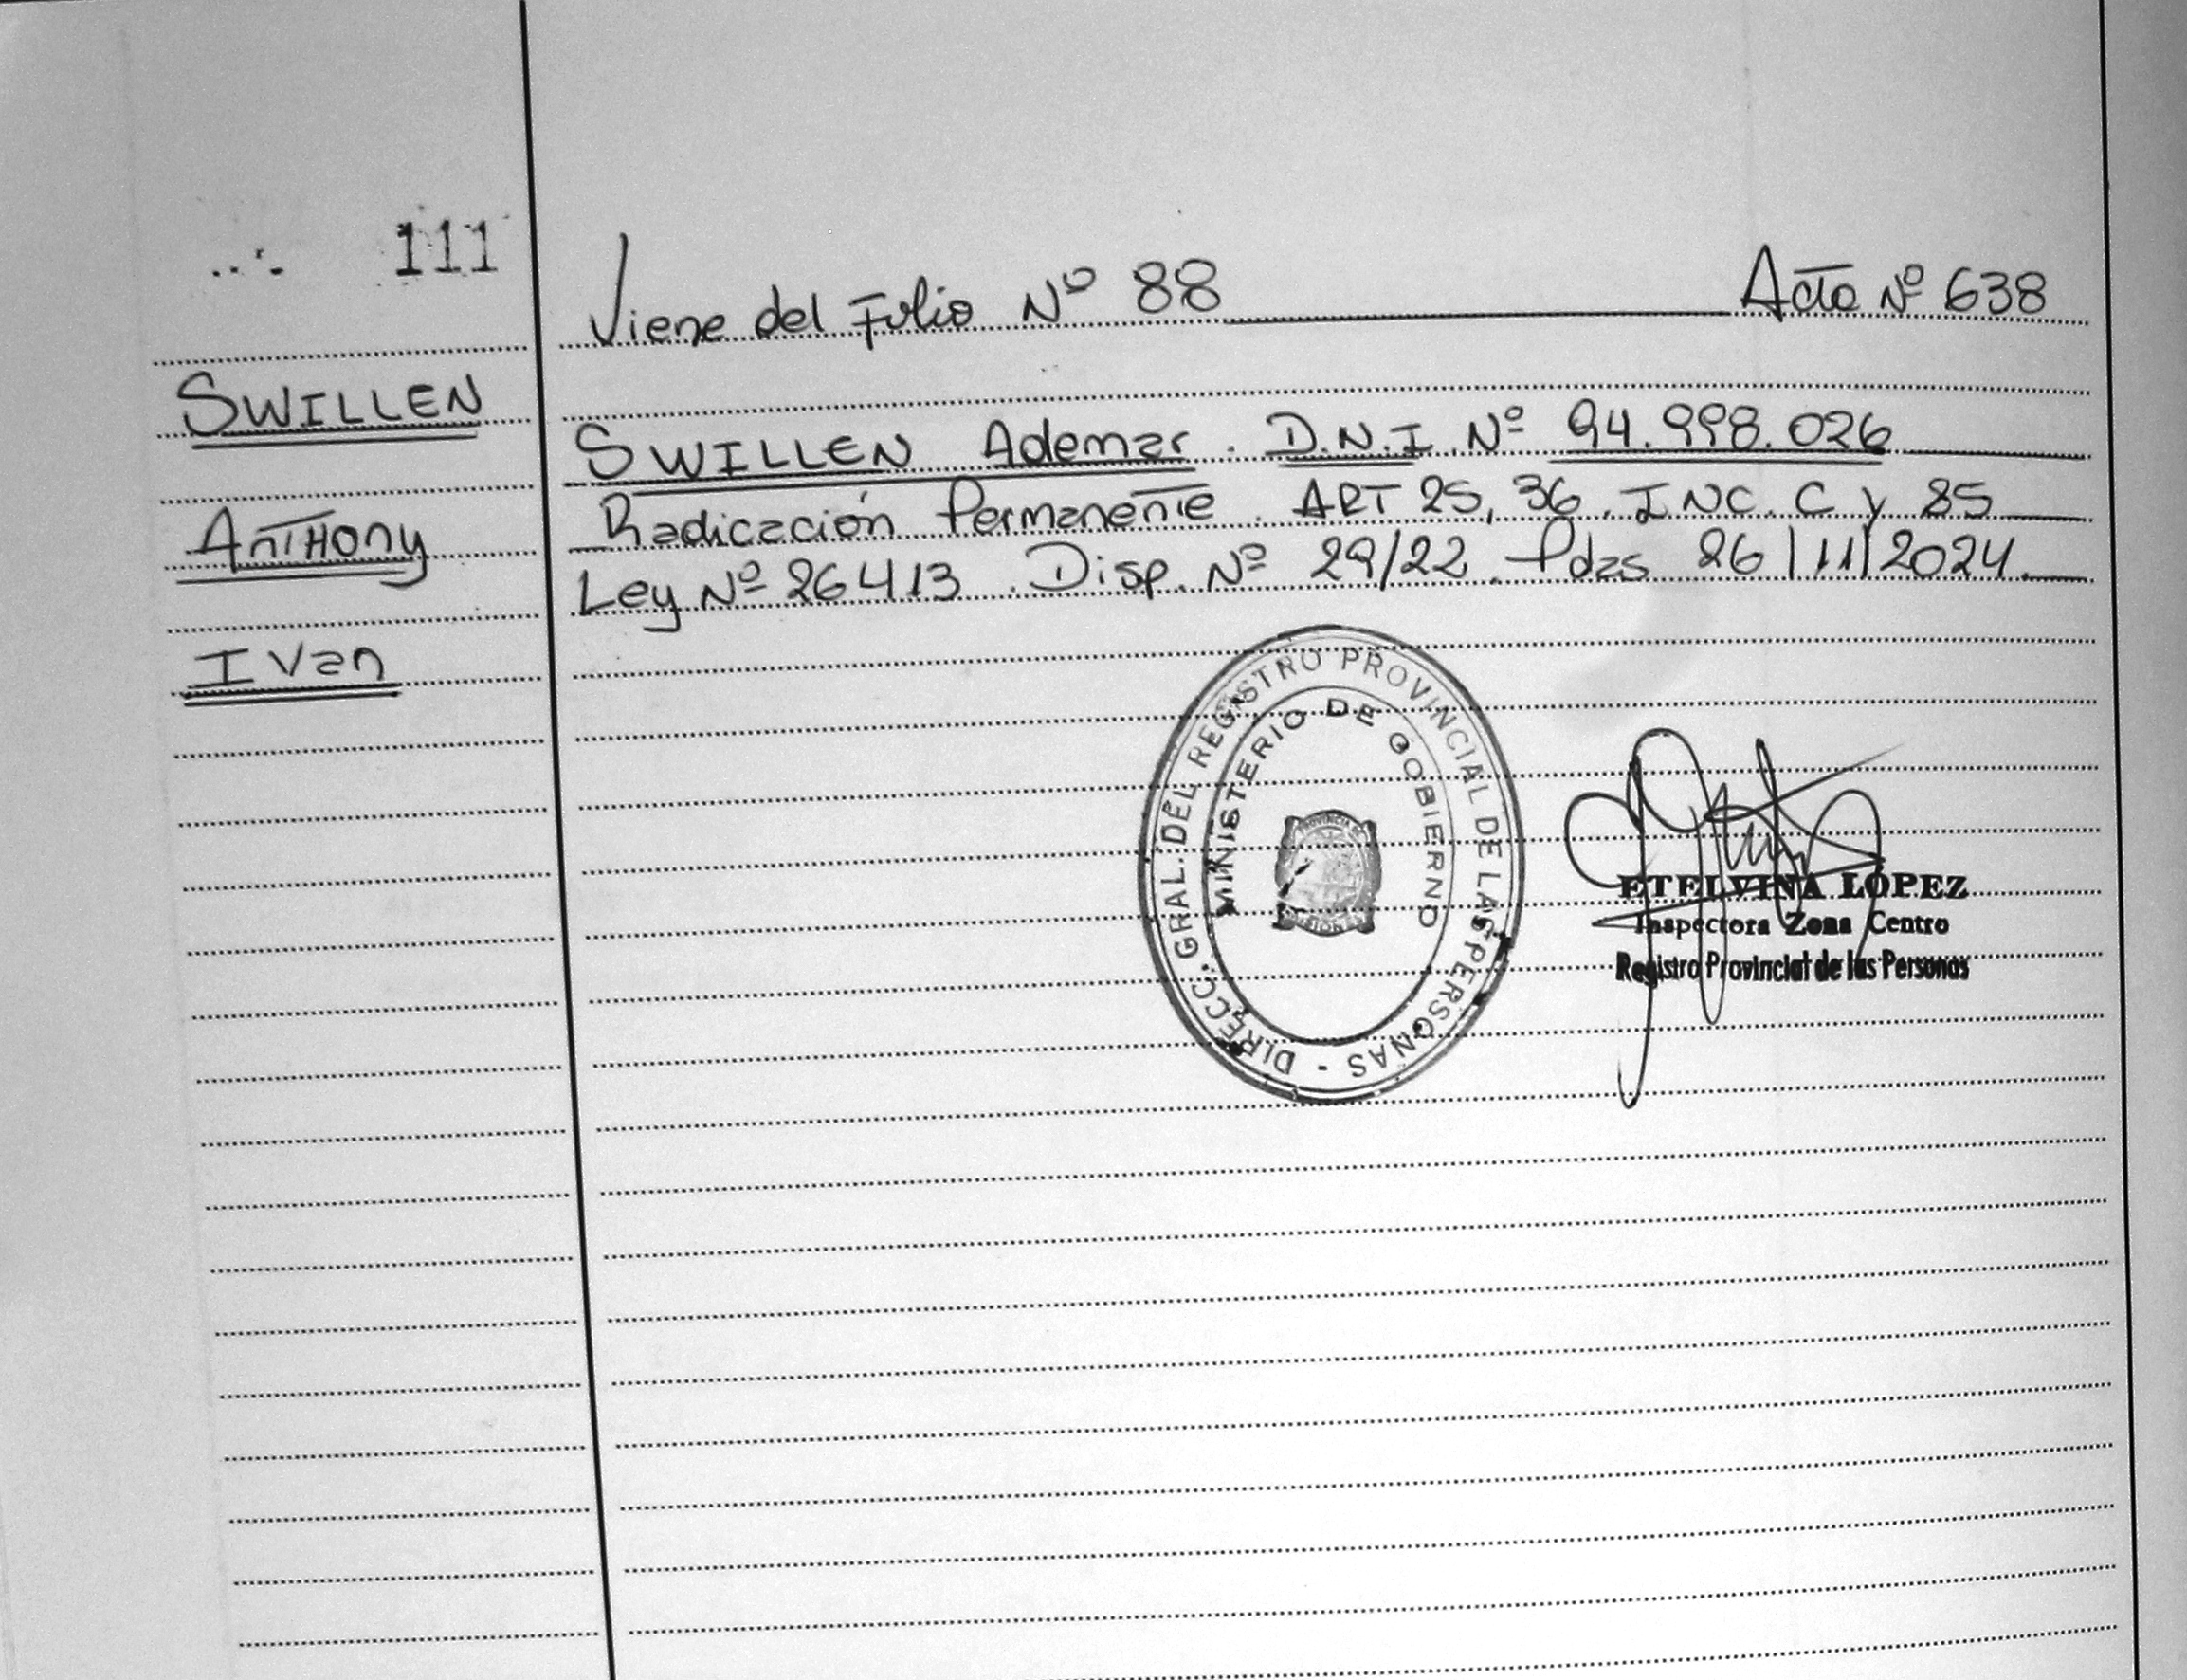 111
Viene del Folio Nº 88 Acta Nº 638
SWILLEN
SWILLEN Ademar. D.N.I. Nº 94.998.026
Radicación Permanente. ART 25, 36. INC. C y 85
ANTHONY
Ley Nº 26413. Disp. Nº 29/22. Pdas 26/11/2024.
Ivan
DIRECC. GRAL. DEL REGISTRO PROVINCIAL DE LAS PERSONAS -
MINISTERIO DE GOBIERNO
PROVINCIA DE
MISIONES
ETELVINA LÓPEZ
Inspectora Zona Centro
Registro Provincial de las Personas